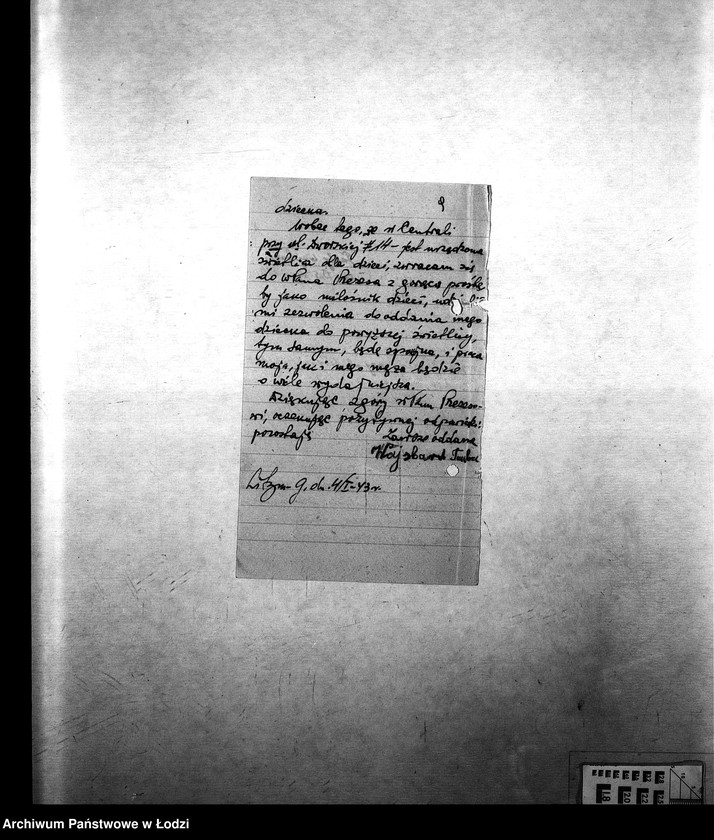 dziecka.
Wobec tego, że w Centrali
przy ul. Dworskiej #14 - jest urządzona
świetlica dla dzieci, zwracam się
do WPana Prezesa z gorącą prośbą
by jako miłośnik dzieci,
mi zezwolenia do oddania mego
dziecka do powyższej świetlicy,
tym samym, będę spokojna, i praca
moja, jak i mego męża będzie
o wiele wydajniejsza.
Dziękując z góry WPanu Prezeso-
wi, oczekując pozytywnej odpowiedzi
pozostaję
Zawsze oddana
Wajsbard
Litzm- G. dn. 4/I-43 r.
Archiwum Państwowe w Łodzi
1.8
2.0
2.2
2.5